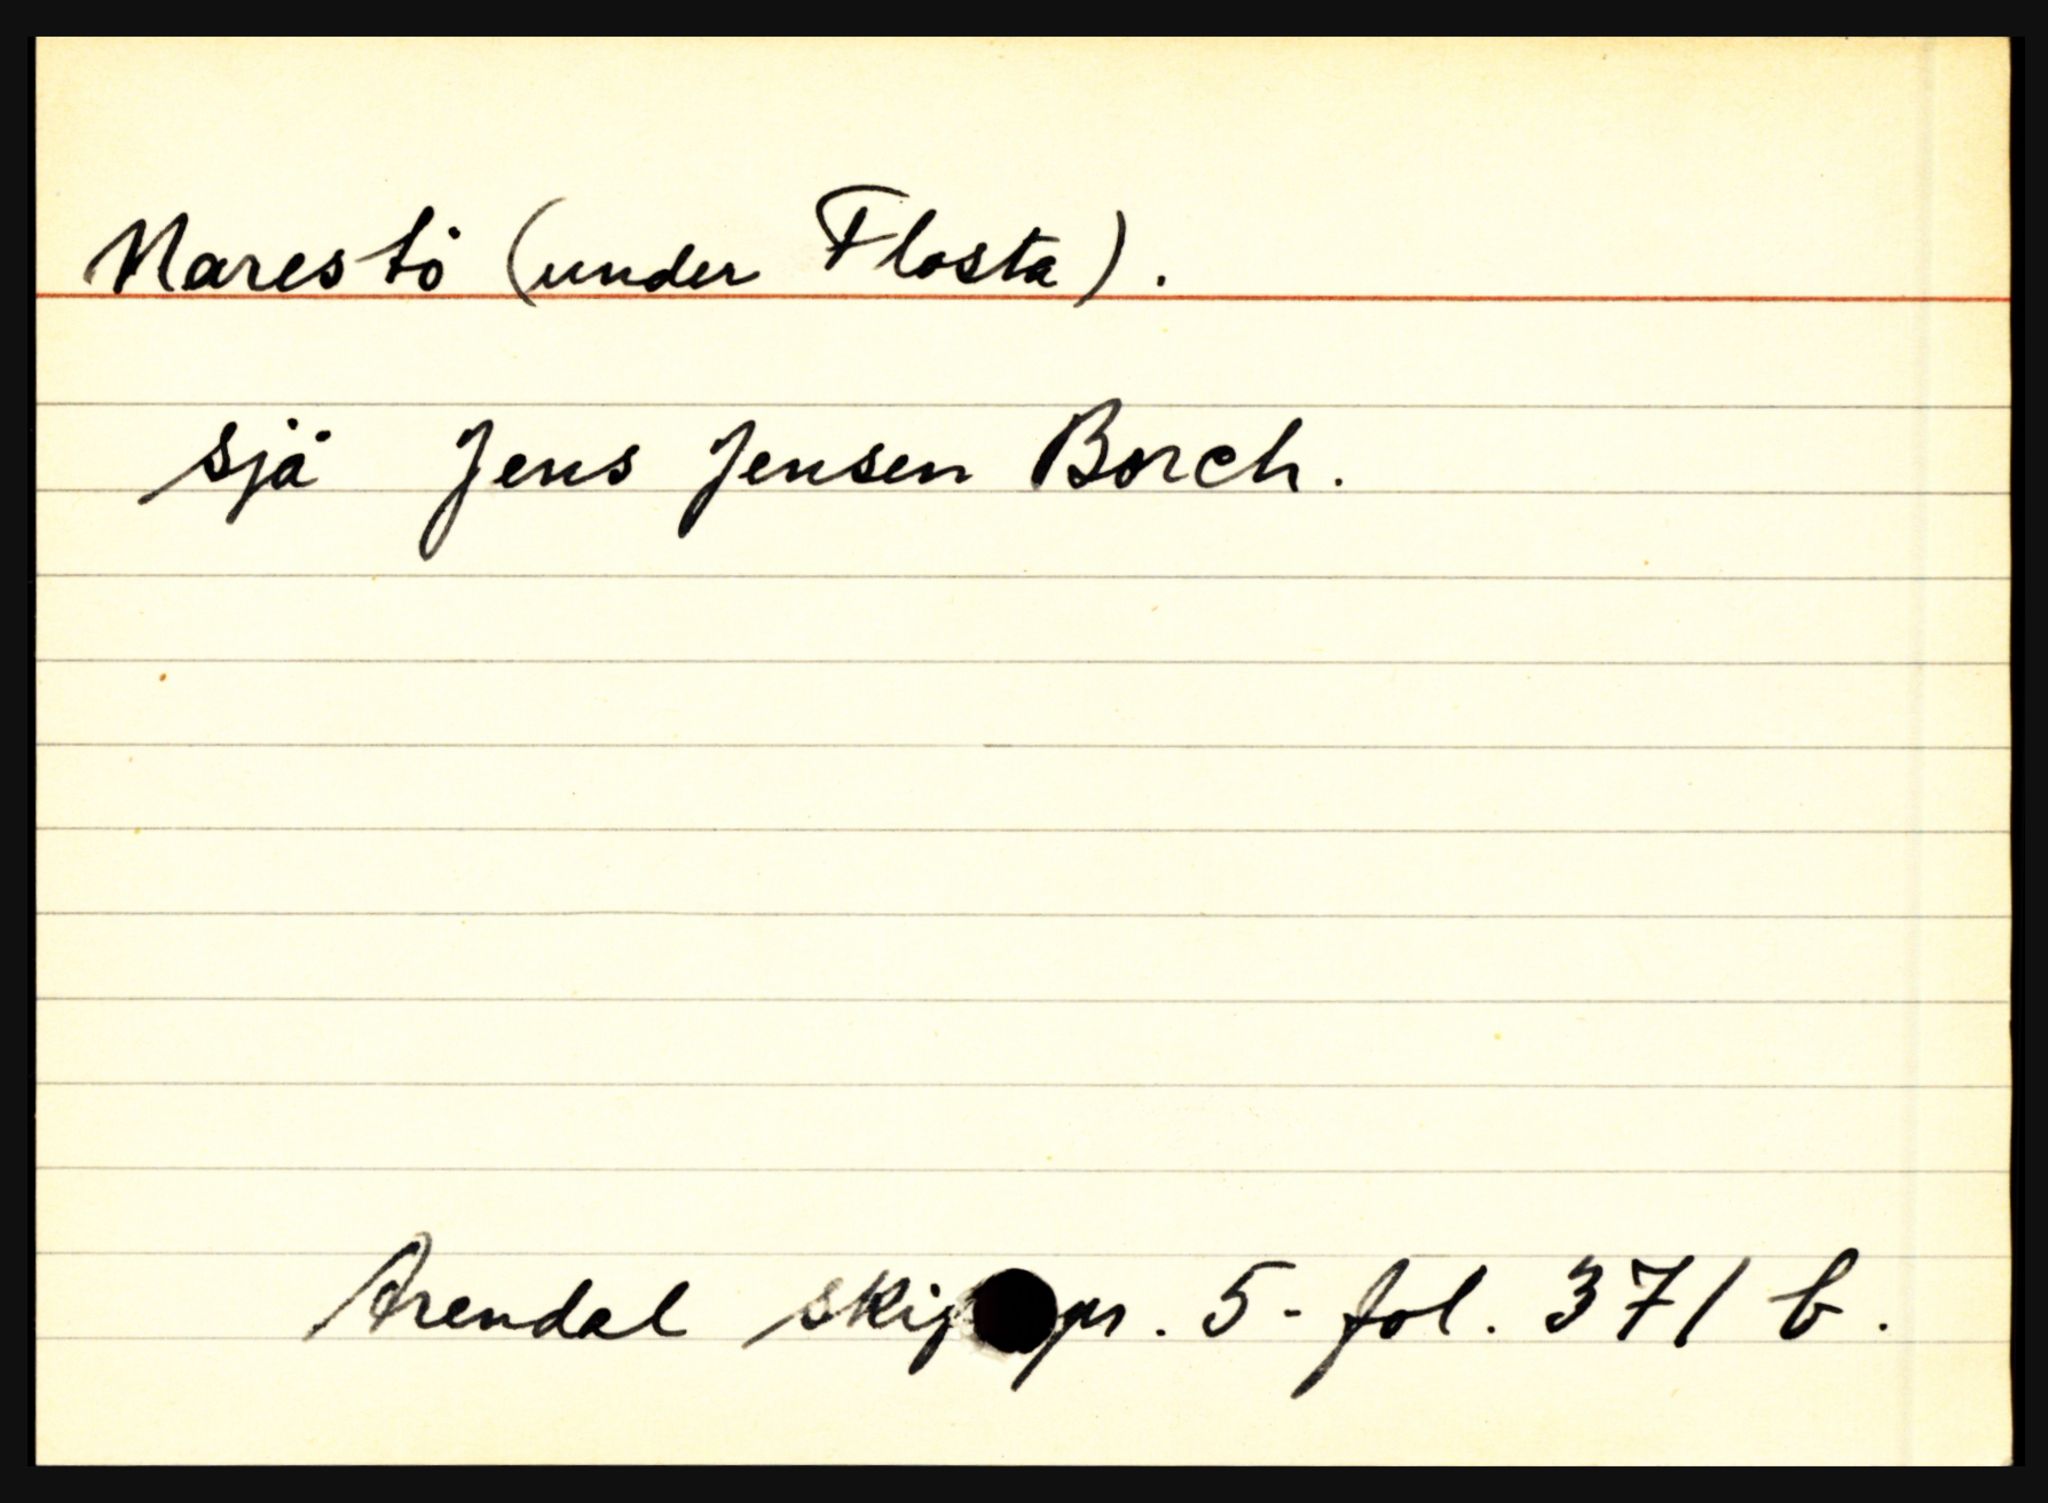 Narestö (under Flosta).
sjå Jens Jensen Borch.
Arendal pr. 5 - fol. 371 b.